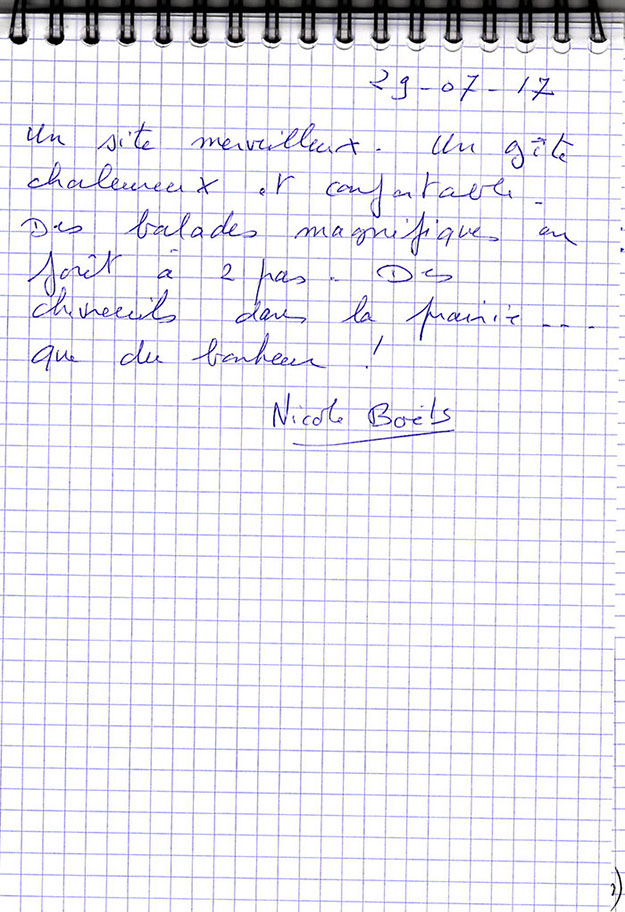 29-07-17
Un site merveilleux. Un gîte
chaleureux et confortable.
Des balades magnifiques en
forêt à 2 pas. Des
chevreuils dans la prairie ....
que du bonheur !
Nicole Boëls